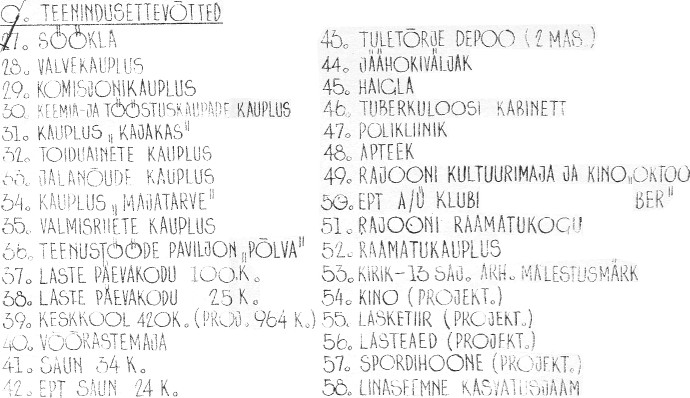 C. TEENINDUSETTEVÕTTED
27. SÖÖKLA
28. VALVEKAUPLUS
29. KOMISJONIKAUPLUS
30. KEEMIA-JA TÖÖSTUSKAUPADE KAUPLUS
31. KAUPLUS „KAJAKAS"
32. TOIDUAINETE KAUPLUS
33. JALANÕUDE KAUPLUS
34. KAUPLUS „MAJATARVE"
35. VALMISRIIETE KAUPLUS
36. TEENUSTÖÖDE PAVILJON „PÕLVA"
37. LASTE PÄEVAKODU 100 K.
38. LASTE PÄEVAKODU 25 K.
39. KESKKOOL 420K. (PROJ. 964 K.)
40. VÕÕRASTEMAJA
41. SAUN 34 K.
42. EPT SAUN 24 K.
43. TULETÕRJE DEPOO (2 MAS.)
44. JÄÄHOKIVÄLJAK
45. HAIGLA
46. TUBERKULOOSI KABINETT
47. POLIKLIINIK
48. APTEEK
49. RAJOONI KULTUURIMAJA JA KINO „OKTOO
50. EPT A/Ü KLUBI BER"
51. RAJOONI RAAMATUKOGU
52. RAAMATUKAUPLUS
53. KIRIK-13 SAJ. ARH. MÄLESTUSMÄRK
54. KINO (PROJEKT.)
55. LASKETIIR (PROJEKT.)
56. LASTEAED (PROJEKT.)
57. SPORDIHOONE (PROJEKT.)
58. LINASEEMNE KASVATUSJAAM